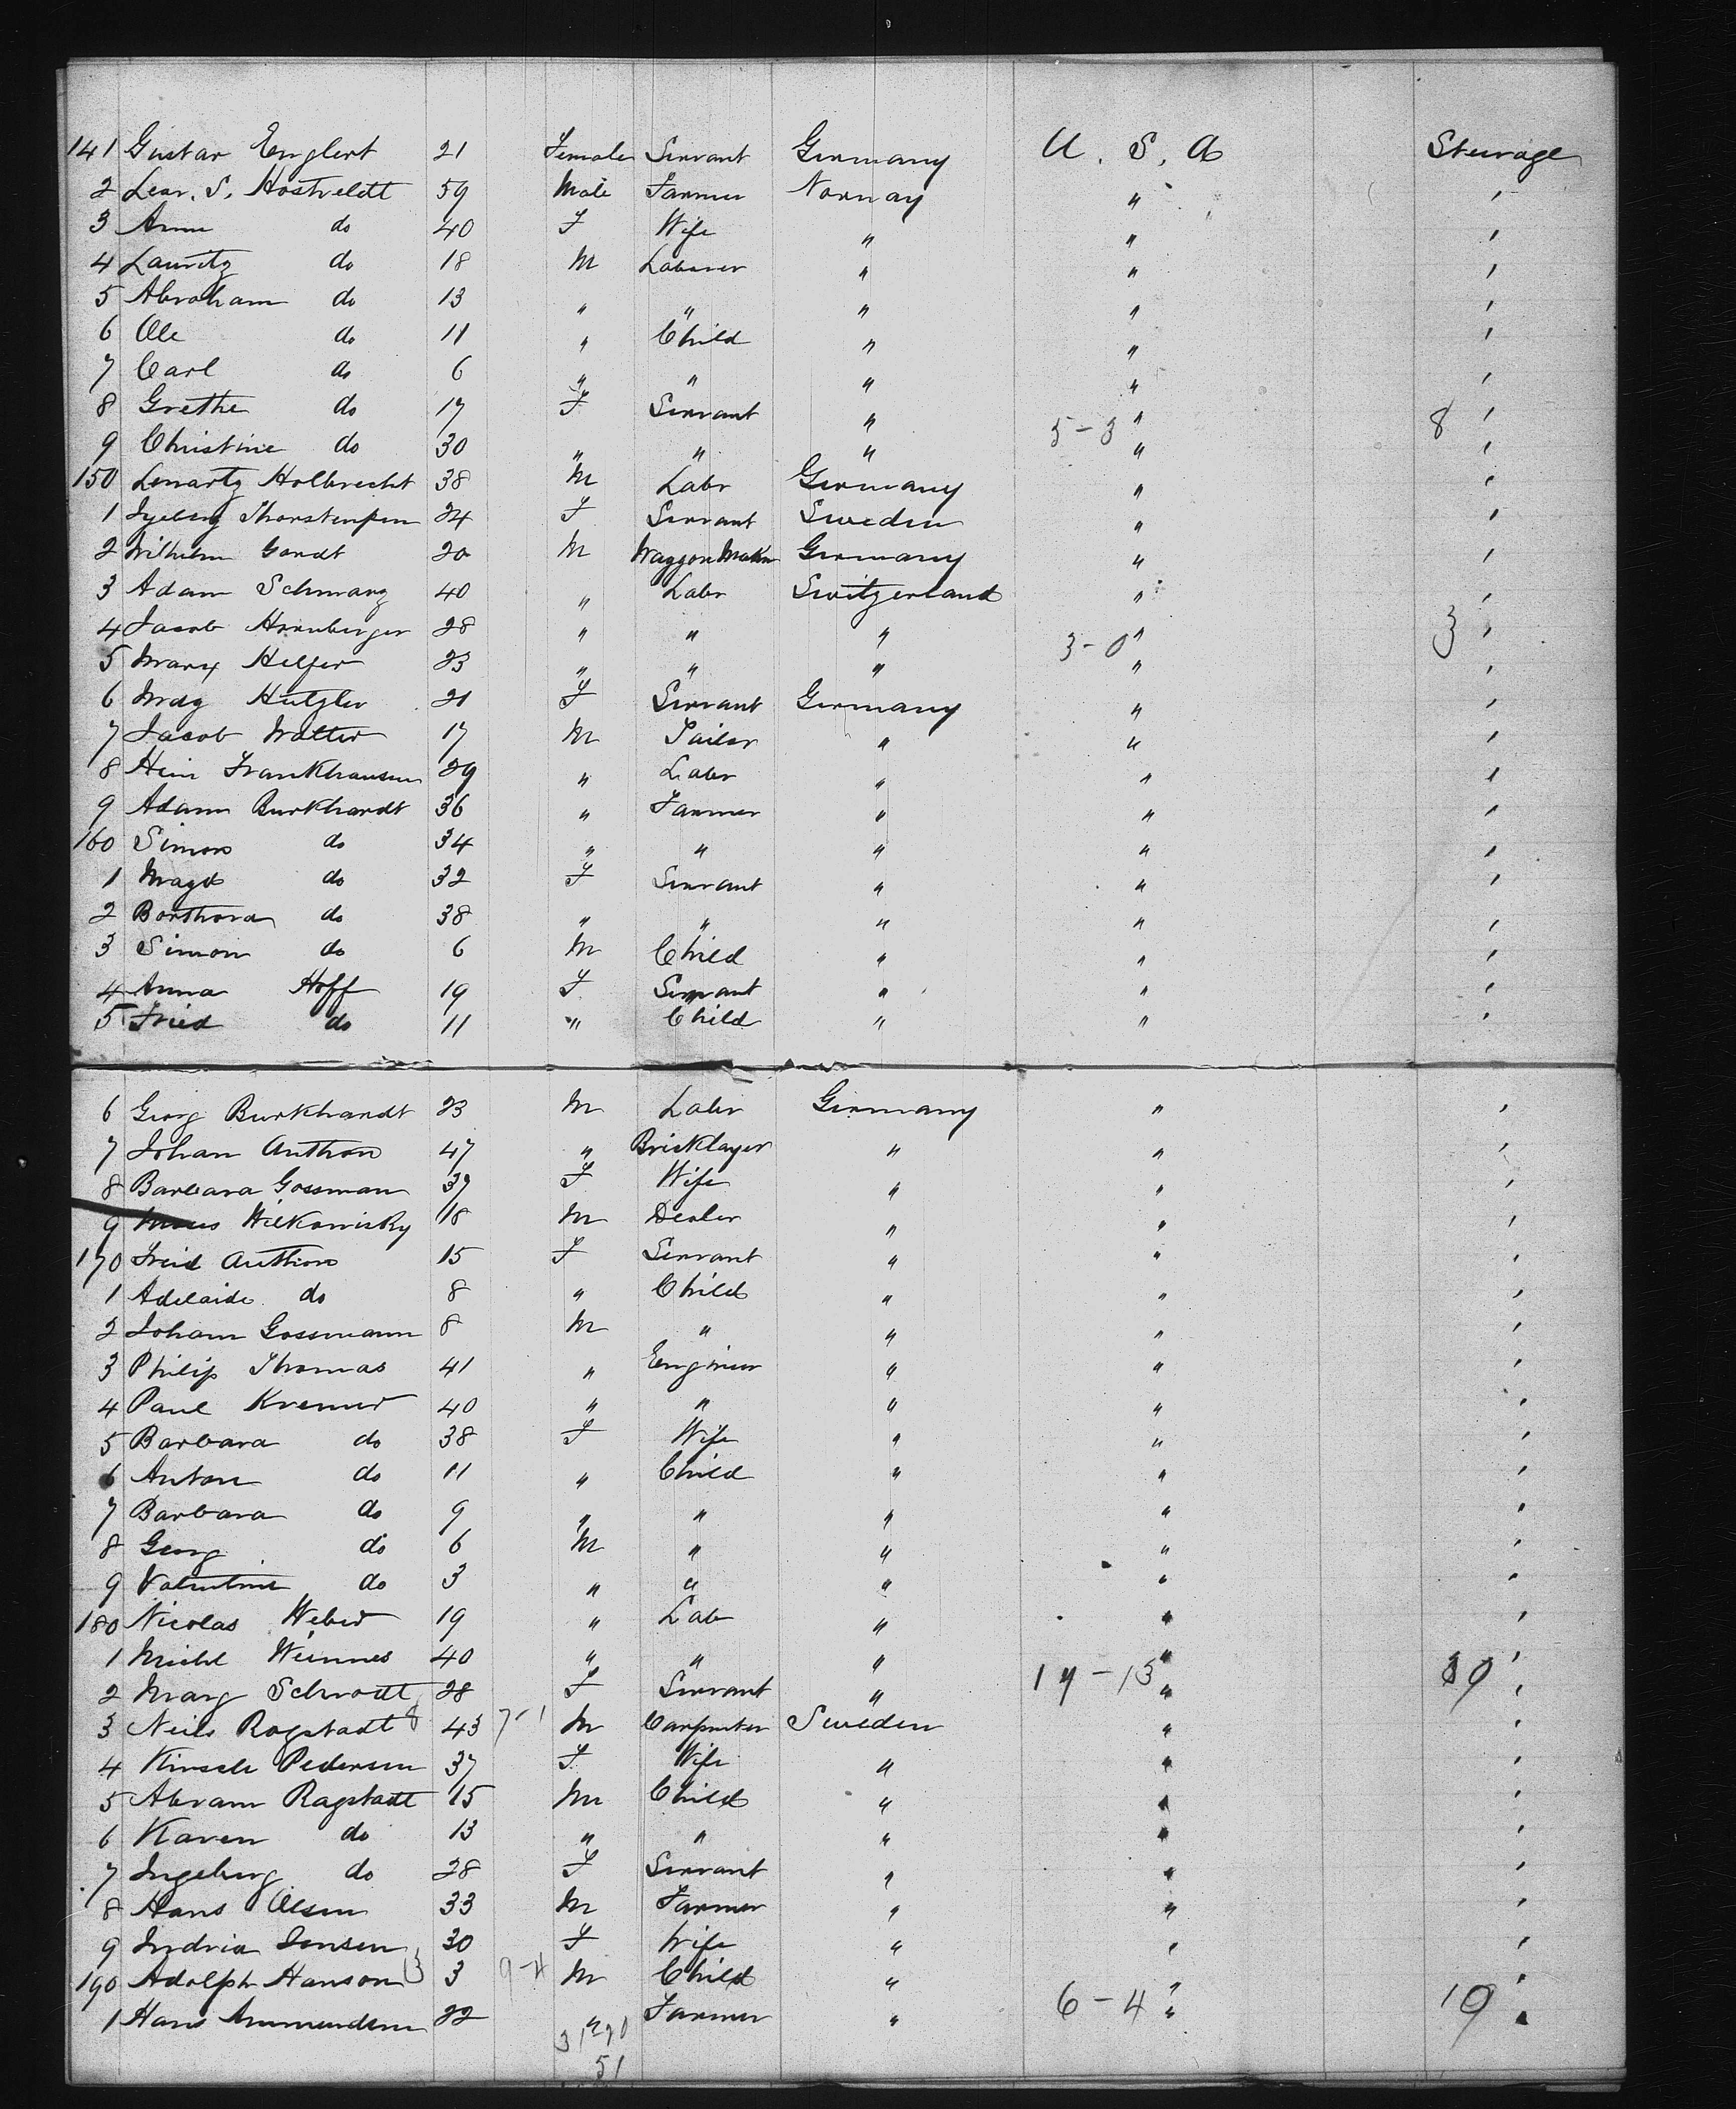 141 Gustav Englert 21 Female Servant Germany U. S. A Steerage
2 Lear. S. Hostveldt 59 Male Farmer Norway " '
3 Anne do 40 F Wife " " '
4 Lauritz do 18 M Laborer " " '
5 Abraham do 13 " " " " '
6 Ole do 11 " Child " " '
7 Carl do 6 " " " " '
8 Grethe do 17 F Servant " 5-3 " 8 '
9 Christine do 30 " " " " '
150 Lenartz Holbrecht 38 M Labr Germany " '
1 Thorstensen 24 F Servant Sweden " '
2 Wilhelm Gandt 20 M Waggon Maker Germany " '
3 Adam Schwarz 40 " Labr Switzerland " '
4 Jacob Hornberger 28 " " " 3-0 " 3 '
5 Marx Helfer 23 " " " " '
6 Mag Hutzler 21 F Servant Germany " '
7 Jacob Walter 17 M Tailor " " '
8 Hein Frankhausen 29 " Labr " " '
9 Adam Burkhardt 36 " Farmer " " '
160 Simon do 34 " " " " '
1 Magd do 32 F Servant " " '
2 do 38 " " " " '
3 Simon do 6 M Child " " '
4 Anna Hoff 19 F Servant " " '
5 Fried do 11 " Child " " '
6 Georg Burkhardt 23 M Labr Germany " '
7 Johan Anthon 47 " Bricklayer " " '
8 Barbara Gossman 37 F Wife " " '
9 Wilkowisky 18 M Dealer " " '
170 Fried Anthon 15 F Servant " " '
1 Adelaide do 8 " Child " " '
2 Johann Gossmann 8 M " " " '
3 Philip Thomas 41 " Engineer " " '
4 Paul Kremer 40 " " " " '
5 Barbara do 38 F Wife " " '
6 Anton do 11 " Child " " '
7 Barbara do 9 " " " " '
8 Georg do 6 M " " " '
9 Valentine do 3 " " " " '
180 Nicolas Weber 19 " Lab " " '
1 Michl Weinnes 40 " " " 17-13 " 30 '
2 Marg Schrodt 28 F Servant " " '
3 Neils Rogstadt 8 43 7-1 M Carpenter Sweden " '
4 Pedersen 37 F Wife " " '
5 Abram Ragstadt 15 M Child " " '
6 Karen do 13 " " " " '
7 Ingeburg do 28 F Servant " " '
8 Hans Olsen 33 M Farmer " " '
9 Indria Jensen 30 F Wife " " '
190 Adolph Hanson 3 3 9-4 M Child " " '
1 Hans Ammundsen 22 " Farmer " 6-4 " 10 '
51